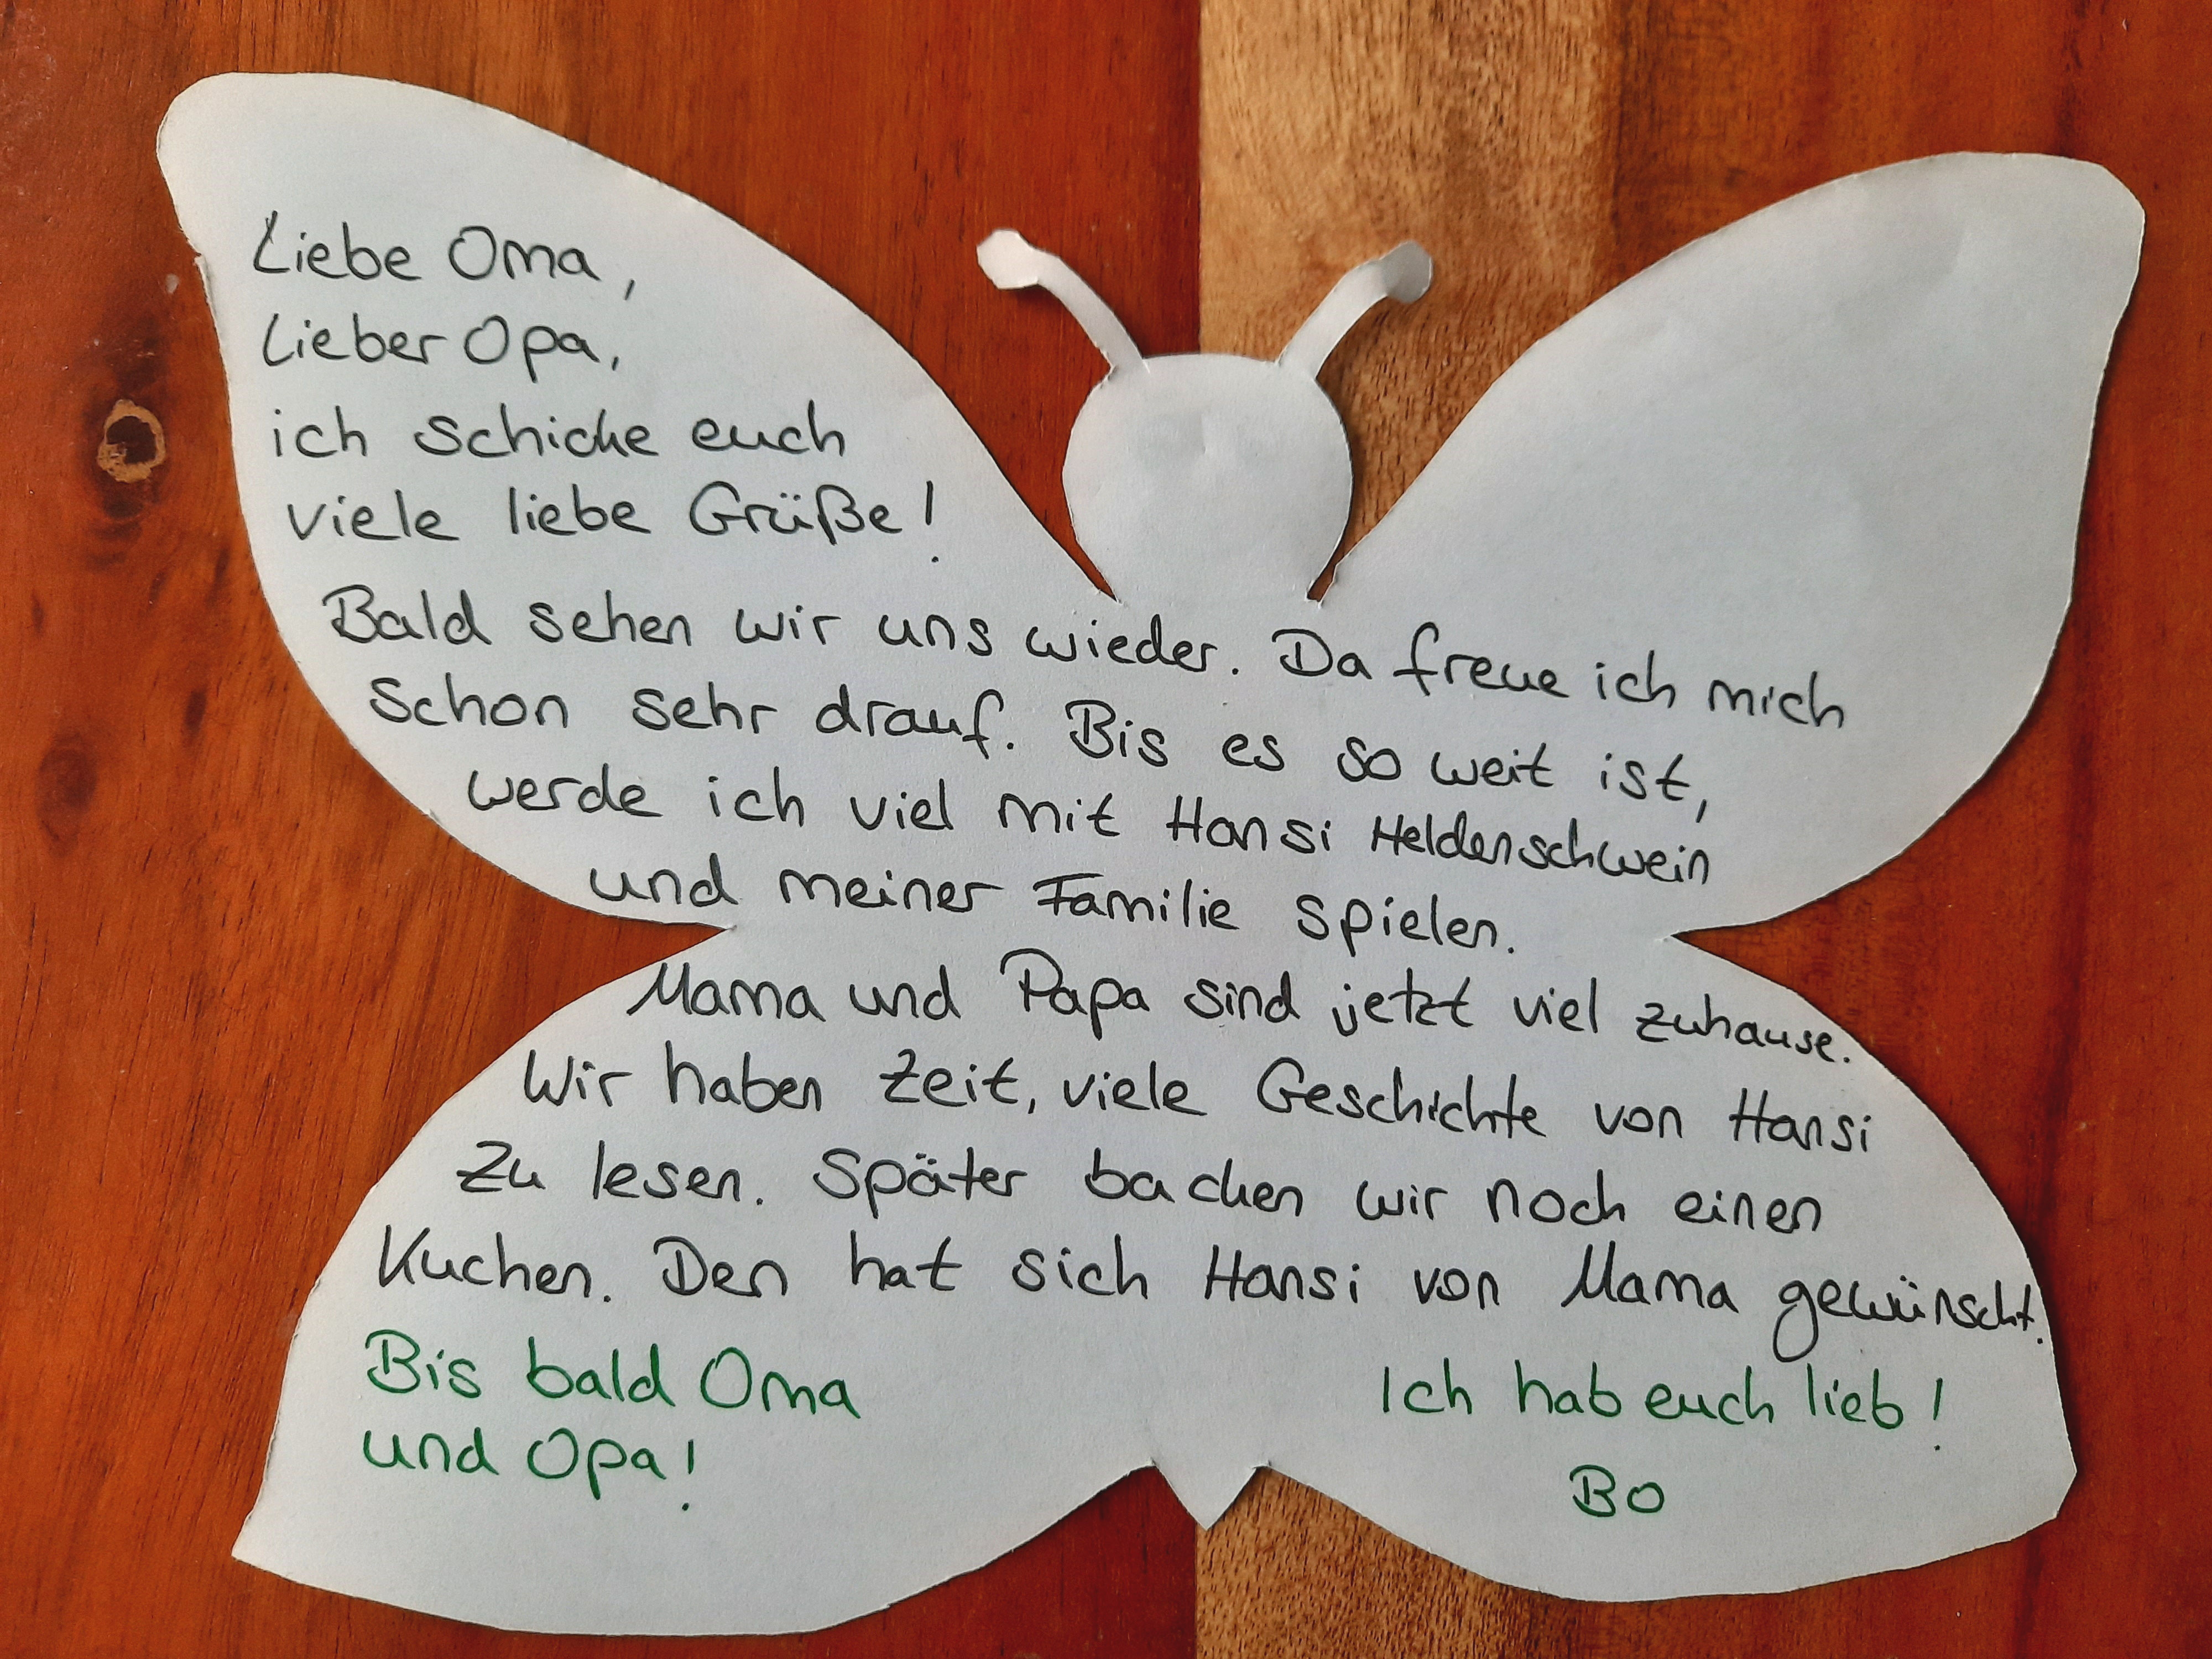 Liebe Oma,
Lieber Opa,
ich schicke euch
viele liebe Grüße!
Bald sehen wir uns wieder. Da freue ich mich
schon sehr drauf. Bis es so weit ist,
werde ich viel mit Hansi Heldenschwein
und meiner Familie spielen.
Mama und Papa sind jetzt viel zuhause.
Wir haben Zeit, viele Geschichte von Hansi
zu lesen. Später backen wir noch einen
Kuchen. Den hat sich Hansi von Mama gewünscht.
Bis bald Oma
und Opa!
Ich hab euch lieb!
Bo